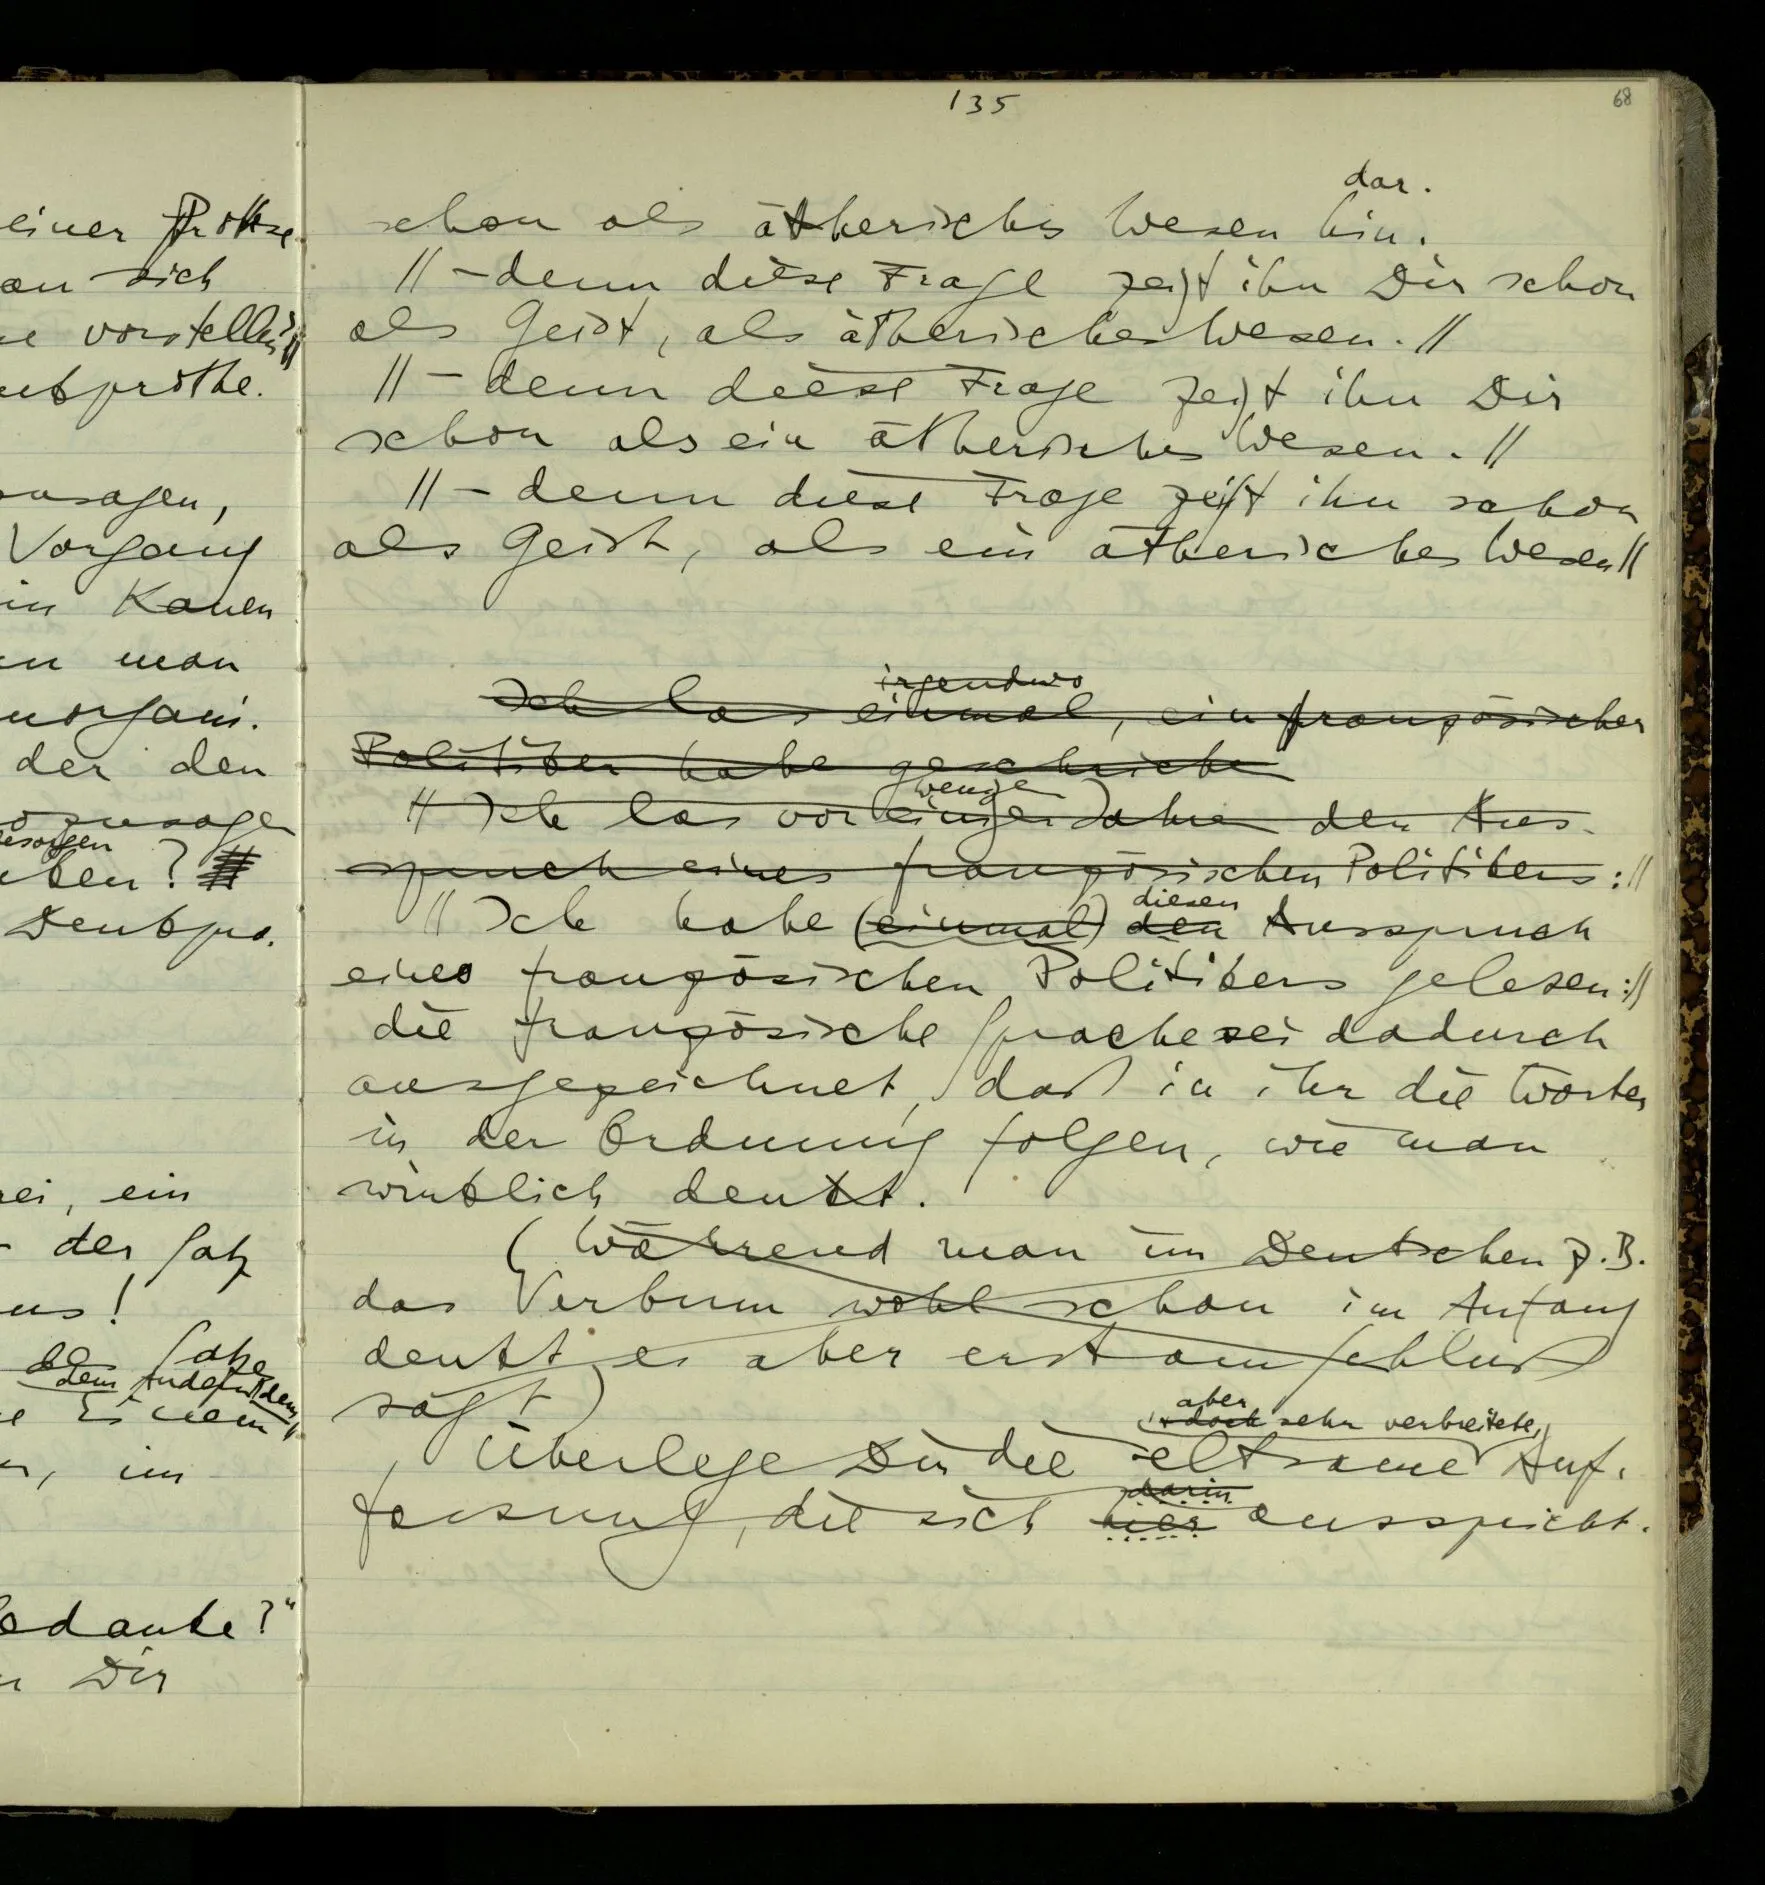 einer Prothse
an sich
vorstellen
prothe.
zusagen,
Vorgang
in Kauen
man
norgani.
der den
sozusagen
besorgen
? 
Denkpro.
rei, ein
der Satz
aus!
Satze
dem Andern
Einem
im
Gedanke?"
Dir
135
68
dar.
schon als ätherisches Wesen hin.
// – denn diese Frage zeigt ihn Dir schon
als Geist, als ätherisches Wesen. //
// – denn diese Frage zeigt ihn Dir
schon als ein ätherisches Wesen. //
// – denn diese Frage zeigt ihn schon
als Geist, als ein ätherisches Wesen //
irgendwo
Ich las einmal, ein französischer
Politiker habe geschrieben
wenigen
// Ich las vor einigen Jahren den Aus-
spruch eines französischen Politikers: //
diesen
// Ich habe (einmal) den Ausspruch
eines französischen Politikers gelesen: //
die französische Sprache sei dadurch
ausgezeichnet, daß in ihr die Wörter
in der Ordnung folgen, wie man
wirklich denkt.
(Während man im Deutschen z.B.
das Verbum wohl schon im Anfang
denkt, es aber erst am Schluß
sagt)
aber
(doch sehr verbreitete,)
Überlege Du die seltsame Auf-
darin
fassung, die sich hier ausspricht.